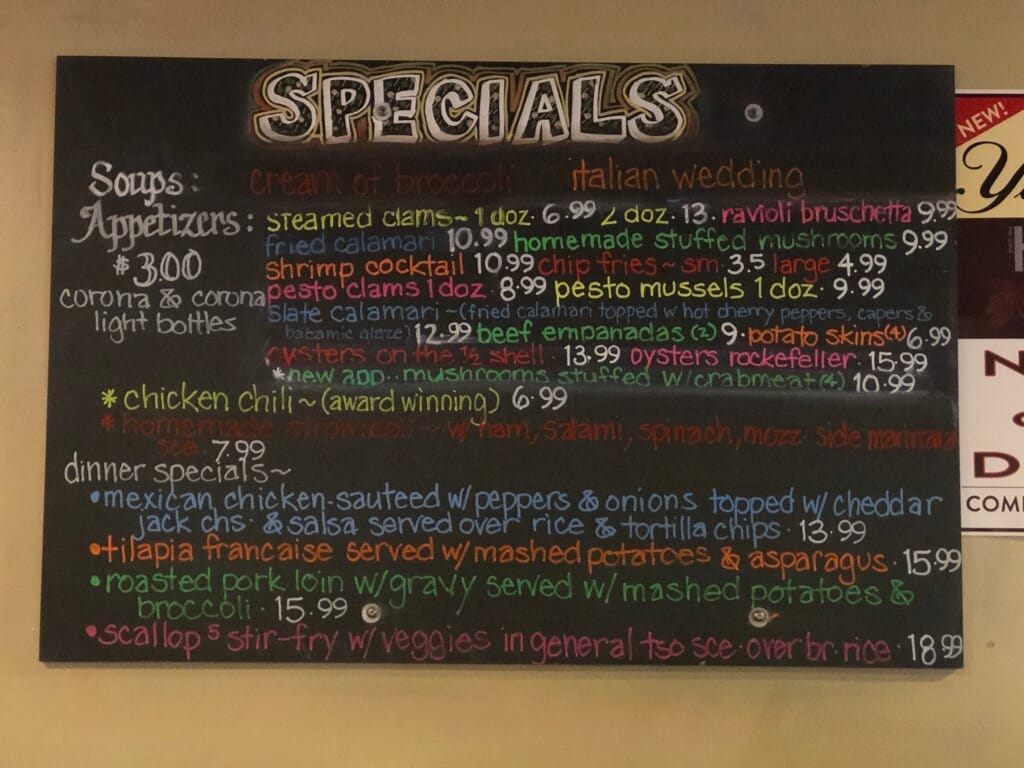 SPECIALS
Soups: cream of broccoli italian wedding
Appetizers: steamed clams~1 doz. 6.99 2 doz. 13. ravioli bruschetta 9.99
fried calamari 10.99 homemade stuffed mushrooms 9.99
$3.00 shrimp cocktail 10.99 chip fries~sm. 3.5 large 4.99
corona & corona pesto clams 1 doz. 8.99 pesto mussels 1 doz. 9.99
light bottles slate calamari~(fried calamari topped w/ hot cherry peppers, capers &
balsamic glaze) 12.99 beef empanadas (2) 9. potato skins (4) 6.99
oysters on the ½ shell. 13.99 oysters rockefeller. 15.99
*new app.. mushrooms stuffed w/crabmeat (4) 10.99
* chicken chili~(award winning) 6.99
* homemade stromboli~ w/ ham, salami, spinach, mozz. side marinara
sce. 7.99
dinner specials~
•mexican chicken-sauteed w/peppers & onions topped w/cheddar
jack chs. & salsa served over rice & tortilla chips. 13.99
•tilapia francaise served w/mashed potatoes & asparagus. 15.99
•roasted pork loin w/gravy served w/mashed potatoes &
broccoli. 15.99
•scallop stir-fry w/veggies in general tso sce. over br. rice. 18.99
NEW!
Y
N
D
COM